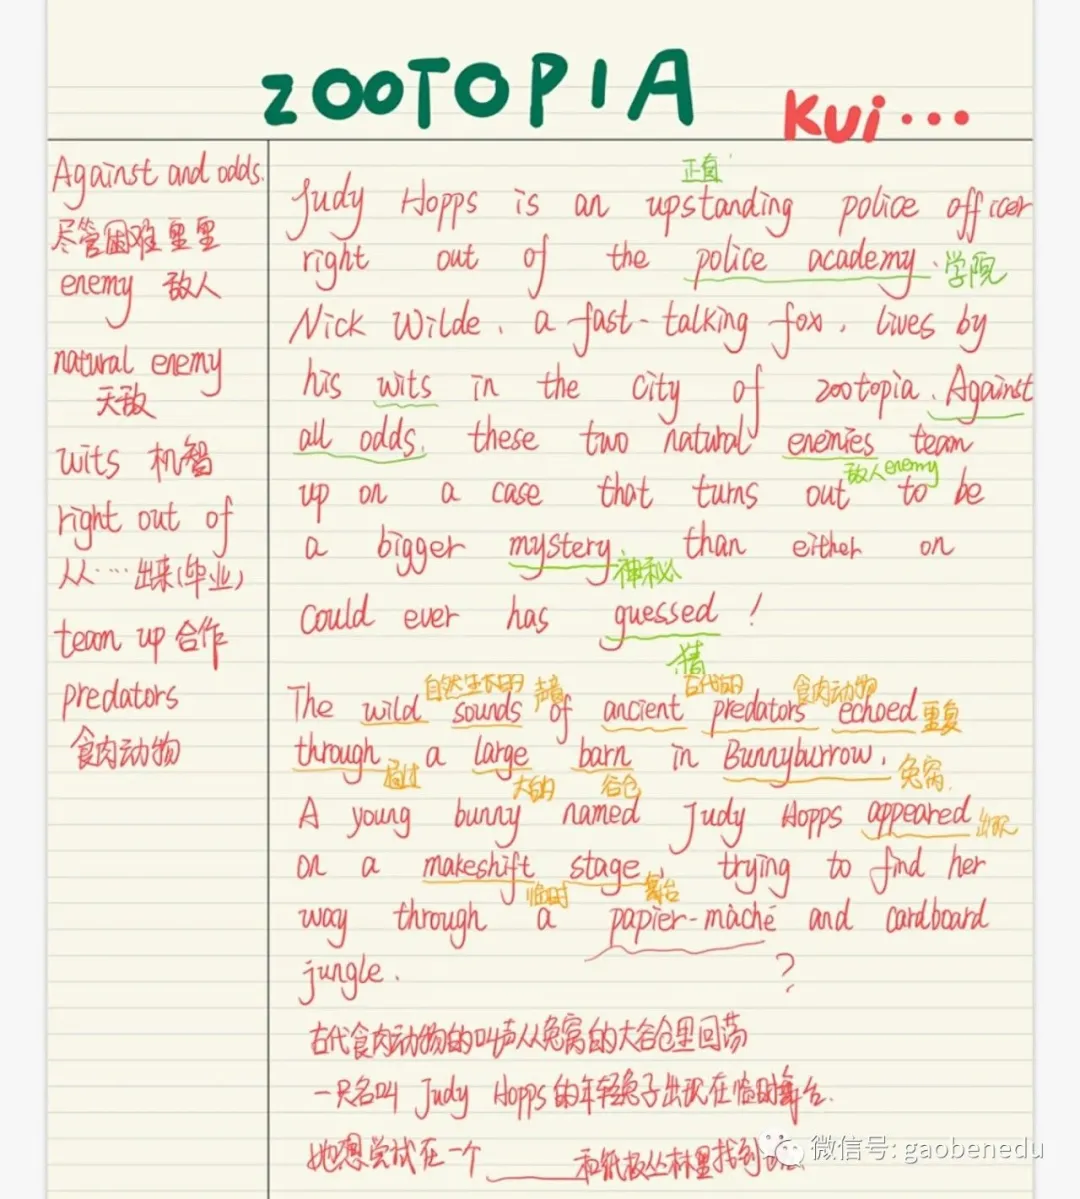 ZOOTOPIA
KUi...
Against and odds.
尽管困难重重
enemy 敌人
natural enemy
天敌
wits 机智
right out of
从····出来(毕业)
team up 合作
predators
食肉动物
正直
Judy Hopps is an upstanding police officer
right out of the police academy. 学院
Nick Wilde, a fast-talking fox, lives by
his wits in the city of zootopia. Against
all odds, these two natural enemies team
敌人 enemy
up on a case that turns out to be
a bigger mystery than either on
神秘
could ever has guessed!
猜
自然生长的 声音 古代的 食肉动物
The wild sounds of ancient predators echoed 重复
through a large barn in Bunnyburrow.
通过 大的 谷仓 兔窝
A young bunny named Judy Hopps appeared 出现
on a makeshift stage, trying to find her
临时 舞台
way through a papier-mâché and cardboard
jungle. ?
古代食肉动物的叫声从兔窝的大谷仓里回荡
一只名叫 Judy Hopps的年轻兔子出现在临时舞台.
她想尝试在一个______和纸板丛林里找到
微信号: gaobenedu